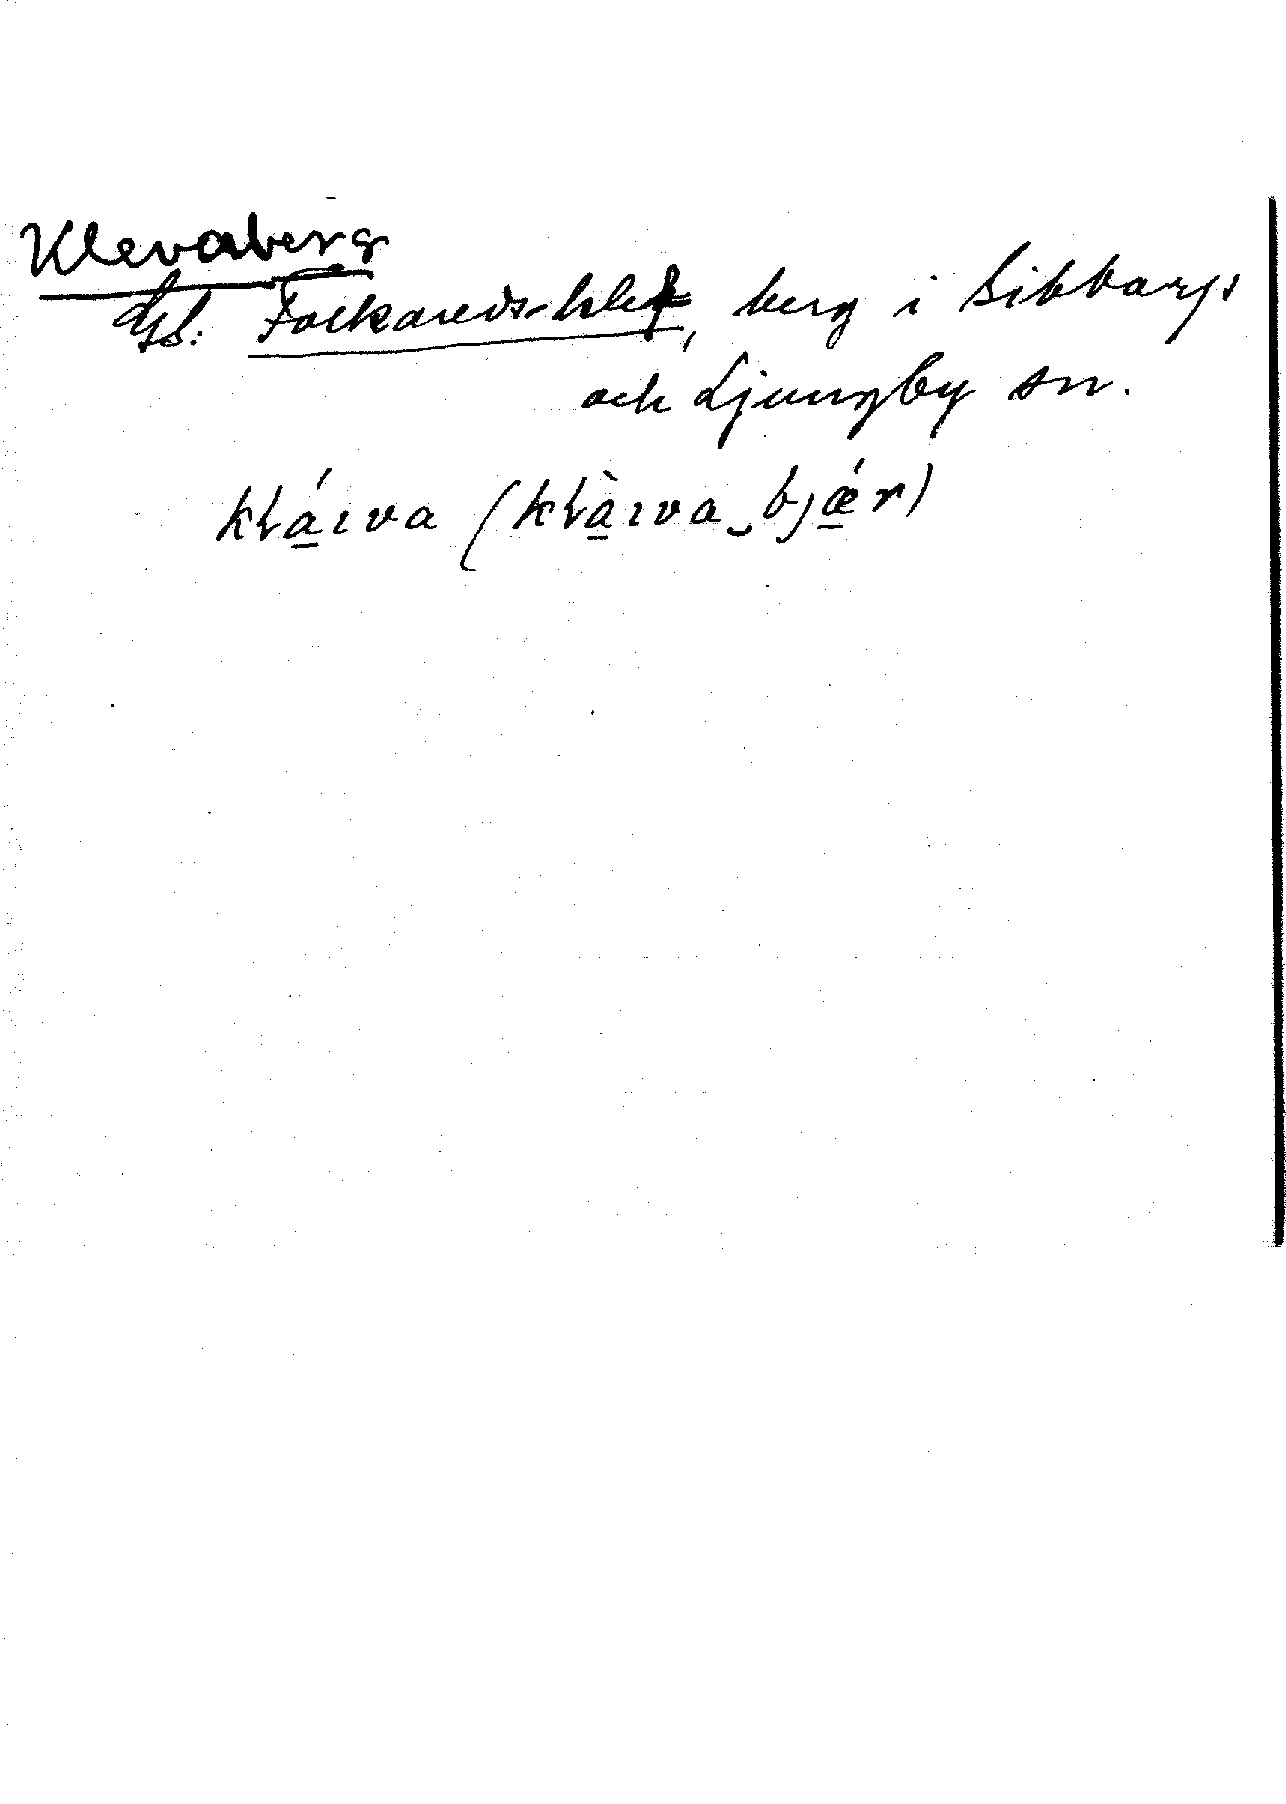 Klevaberg
Gsb. Folkareds-klef, berg i Sibbarps
och Ljungby sn.
klá̱ıva (klà̱ıva‿bjǽ̱r)